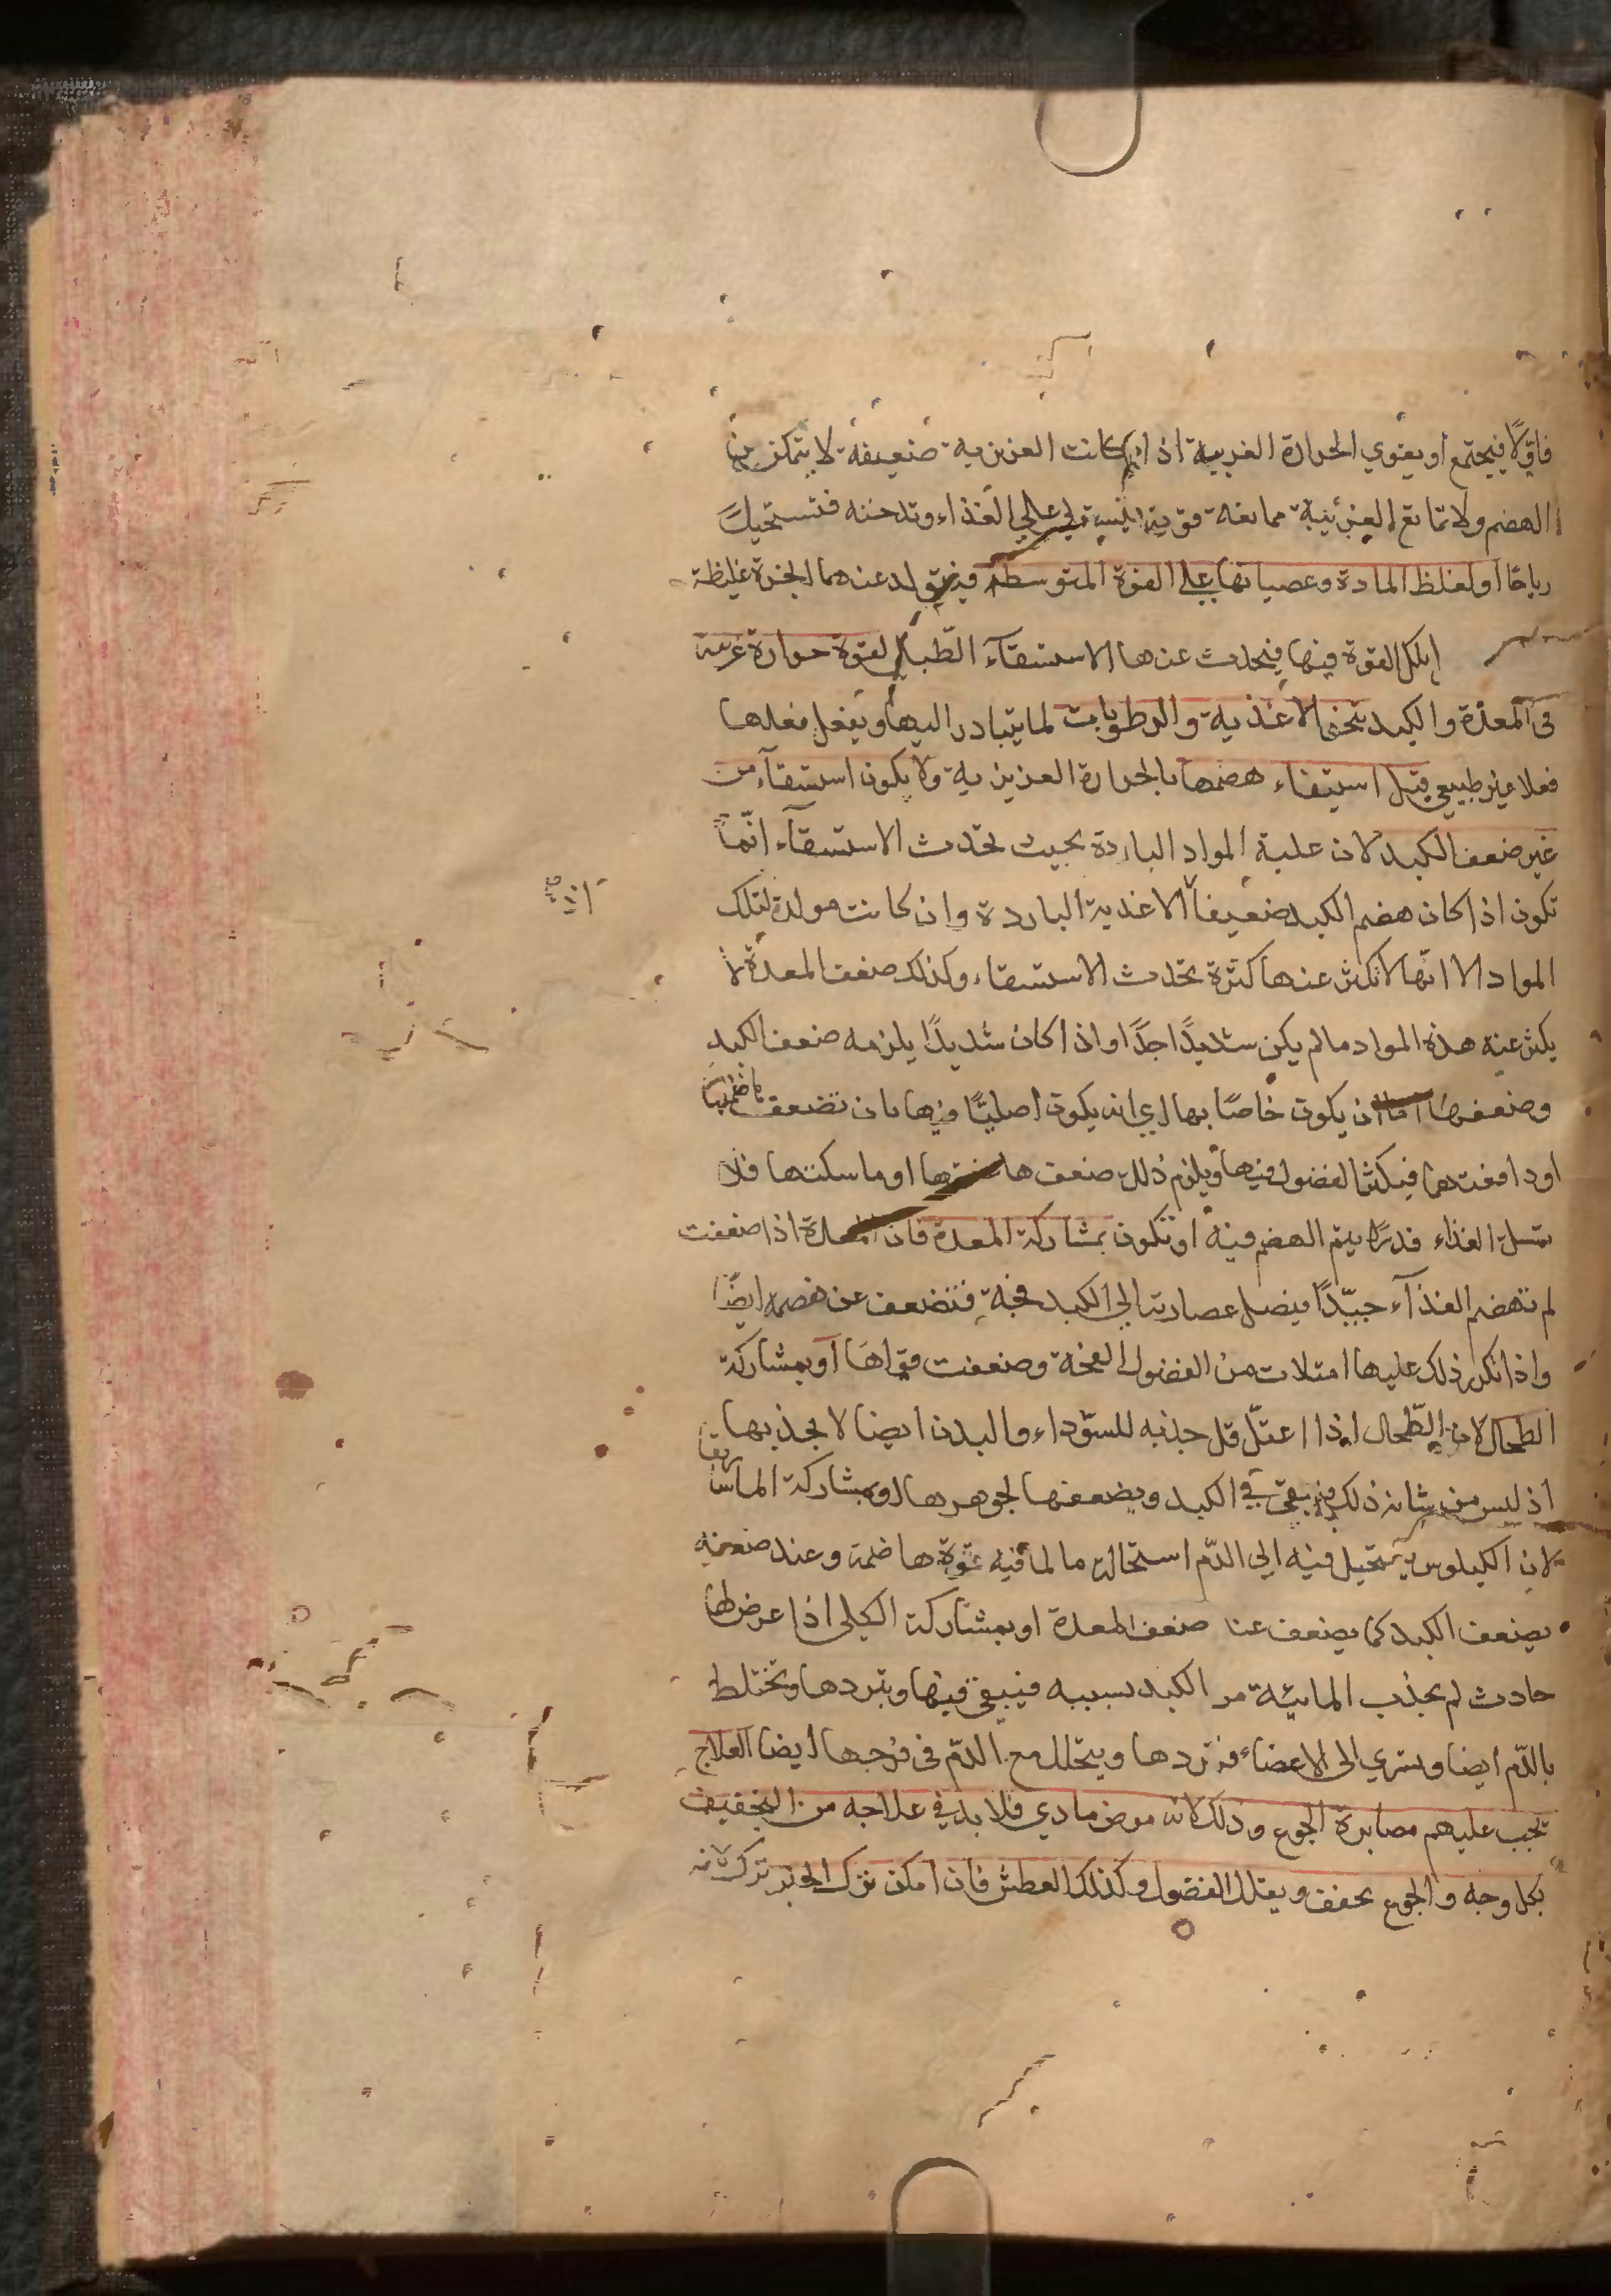 فاولًا فيجتمع أو يقوي الحرارة الغريبة اذا كانت الغريزية ضعيفة لا يتمكن من
الهضم ولا تمانع الغريبة ممانعة قوية فيستولي على الغذاء وتدخنه فتستحيل
رياحا أو لغلظ المادة وعصيانها على القوة المتوسطة فيتولد عنهما ابخرة غليظة
لكل القوة فيها فيحدث عنها الاستسقاء الطبلي لقوة حرارة غريبة
في المعدة والكبد تبخر الاغذية والرطوبات لما يتبادر اليها ويفعل فعلها
فعلا غير طبيعي قبل استيفاء هضمها بالحرارة الغريزية ولا يكون استسقآء من
غير ضعف الكبد لان غلبة المواد الباردة بحيث تحدث الاستسقآء انّما
تكون اذا كان هضم الكبد ضعيفا الاغذية الباردة وان كانت مولدة لتلك
المواد الا انّها لا تكثر عنها كثرة تحدث الاستسقاء وكذلك ضعف المعدة لا
يكثر عنه هذه المواد مالم يكن شديدًا جدًا واذا كان شديدًا يلزمه ضعف الكبد
وضعفها اما ان يكون خاصًا بها اي انه يكون اصليًا فيها بان تضعف هاضمتها
او دافعتها فيكثر الفضول فيها ويلزم ذلك ضعف هاضمتها او ماسكتها فلا
تمسك الغذاء قدرًا يتم الهضم فيه او تكون بمشاركة المعدة فان المعدة اذا ضعفت
لم تهضم الغذآء جيّدًا فيصل عصارته الي الكبد فجة فتضعف عن هضمه ايضًا
واذا تكرر ذلك عليها امتلات من الفضول الفجة وضعفت قواها أو بمشاركة
الطحال لان الطّحال اذا اعتلّ قل جذبه للسّوداء والبدن ايضا لا يجذبها
اذ ليس من شانه ذلك فيبقي في الكبد ويضعفها لجوهرها او بمشاركة الماساريقا
لان الكيلوس يستحيل فيه الي الدّم استحالة ما لما فيه قوة هاضمة وعند ضعفه
يضعف الكبد كما يضعف عنا ضعف المعدة او بمشاركة الكلى اذا عرض لها
حادث لم يجذب المائية من الكبد بسببه فيبقى فيها ويبردها ويختلط
بالدّم ايضا ويسري الى الاعضاء فبردها ويتحلل مع الدّم في فرجها أيضا العلاج
يجب عليهم مصابرة الجوع وذلك لانه مرض مادي فلا بد في علاجه من التجفيف
بكل وجه والجوع يجفف ويقلل الفضول وكذلك العطش فان امكن ترك الخبز ترك لانه